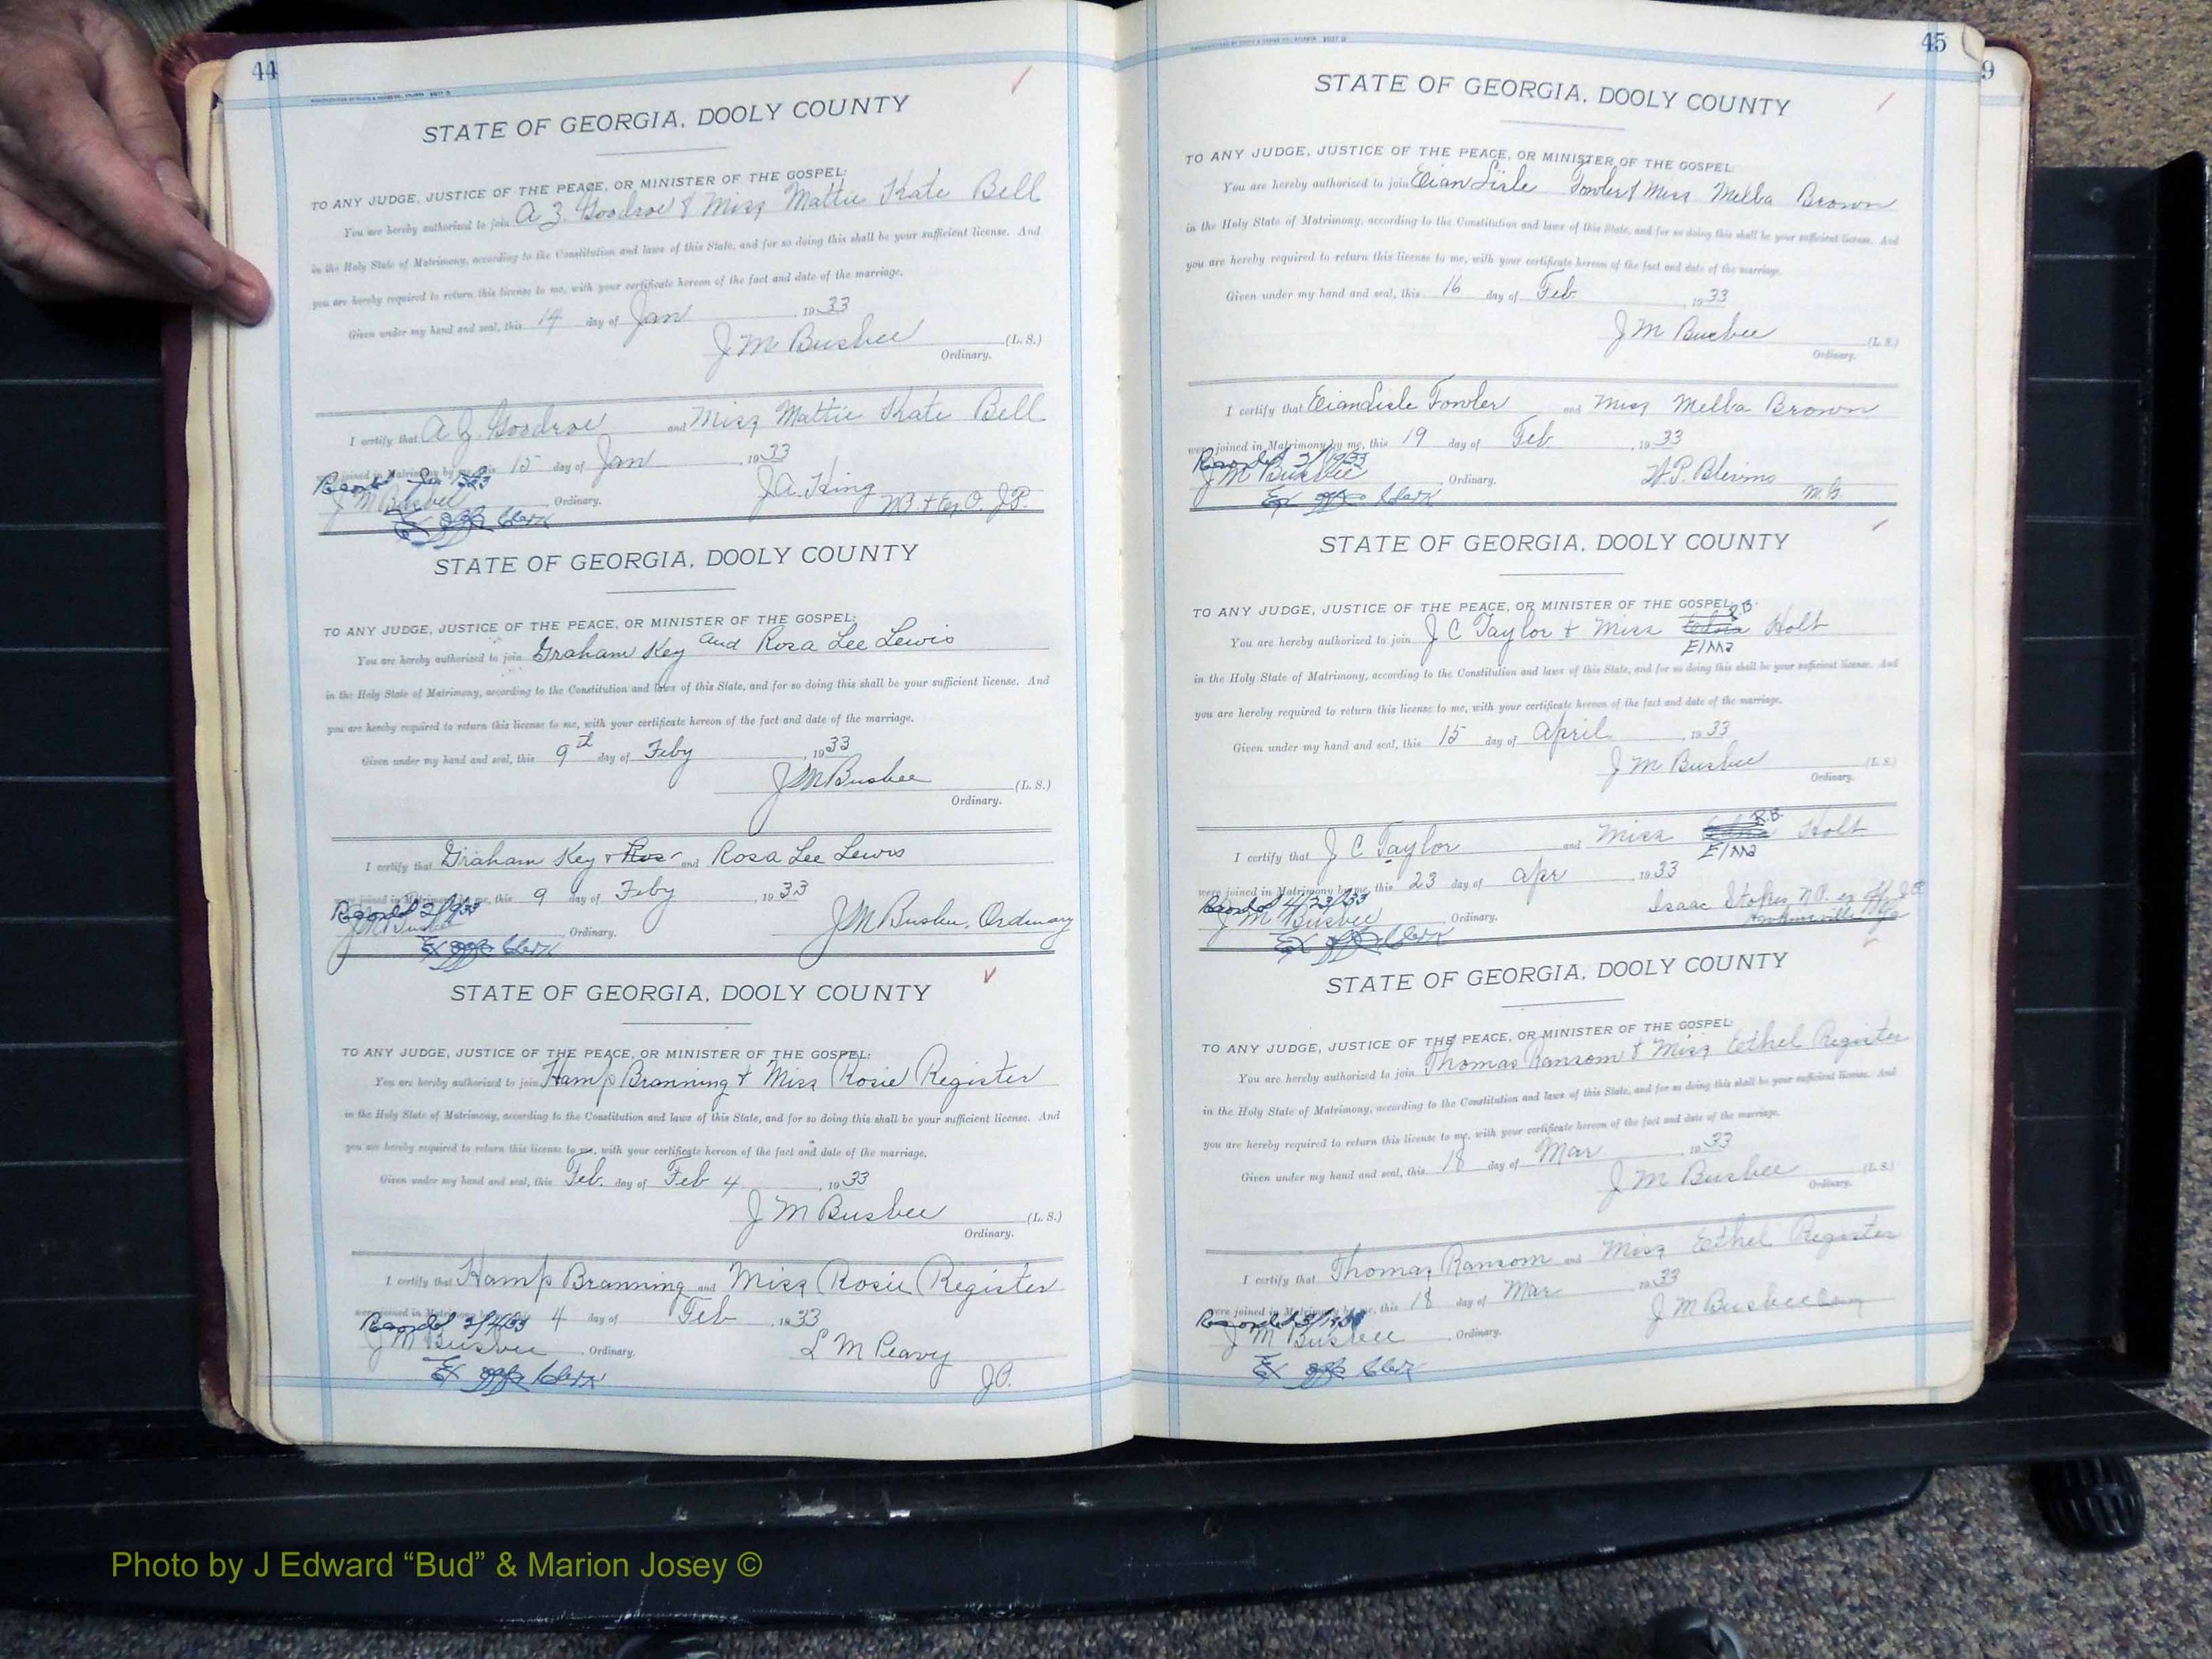 44
STATE OF GEORGIA, DOOLY COUNTY
TO ANY JUDGE, JUSTICE OF THE PEACE, OR MINISTER OF THE GOSPEL:
You are hereby authorized to join A Z. Goodroe & Miss Mattie Kate Bell
in the Holy State of Matrimony, according to the Constitution and laws of this State, and for so doing this shall be your sufficient license. And
you are hereby required to return this license to me, with your certificate hereon of the fact and date of the marriage.
Given under my hand and seal, this 14 day of Jan, 1933
J M Busbee (L. S.)
Ordinary.
I certify that A Z. Goodroe and Miss Mattie Kate Bell
were joined in Matrimony by me, this 15 day of Jan, 1933
Recorded
J M Busbee, Ordinary. J A. King
Ex offo Clerk N.P. & Ex. O. J.P.
STATE OF GEORGIA, DOOLY COUNTY
TO ANY JUDGE, JUSTICE OF THE PEACE, OR MINISTER OF THE GOSPEL:
You are hereby authorized to join Graham Key and Rosa Lee Lewis
in the Holy State of Matrimony, according to the Constitution and laws of this State, and for so doing this shall be your sufficient license. And
you are hereby required to return this license to me, with your certificate hereon of the fact and date of the marriage.
Given under my hand and seal, this 9th day of Feby, 1933
J M Busbee (L. S.)
Ordinary.
I certify that Graham Key & Ros and Rosa Lee Lewis
were joined in Matrimony by me, this 9 day of Feby, 1933
Recorded 2/9/33
J M Busbee, Ordinary. J M Busbee, Ordinary
Ex offo Clerk
STATE OF GEORGIA, DOOLY COUNTY
TO ANY JUDGE, JUSTICE OF THE PEACE, OR MINISTER OF THE GOSPEL:
You are hereby authorized to join Hamp Branning & Miss Rosie Register
in the Holy State of Matrimony, according to the Constitution and laws of this State, and for so doing this shall be your sufficient license. And
you are hereby required to return this license to me, with your certificate hereon of the fact and date of the marriage.
Given under my hand and seal, this Feb. day of Feb 4, 1933
J M Busbee (L. S.)
Ordinary.
I certify that Hamp Branning and Miss Rosie Register
were joined in Matrimony by me, this 4 day of Feb, 1933
Recorded 2/4/33
J M Busbee, Ordinary. L M Peavy
Ex offo Clerk J P.
45
9
STATE OF GEORGIA, DOOLY COUNTY
TO ANY JUDGE, JUSTICE OF THE PEACE, OR MINISTER OF THE GOSPEL:
You are hereby authorized to join Eian Lisle Fowler & Miss Melba Brown
in the Holy State of Matrimony, according to the Constitution and laws of this State, and for so doing this shall be your sufficient license. And
you are hereby required to return this license to me, with your certificate hereon of the fact and date of the marriage.
Given under my hand and seal, this 16 day of Feb, 1933
J M Busbee (L. S.)
Ordinary.
I certify that Eian Lisle Fowler and Miss Melba Brown
were joined in Matrimony by me, this 19 day of Feb, 1933
Recorded 2/19/33
J M Busbee, Ordinary. W. P. Blevins
Ex offo Clerk M G.
STATE OF GEORGIA, DOOLY COUNTY
TO ANY JUDGE, JUSTICE OF THE PEACE, OR MINISTER OF THE GOSPEL:
R.B.
You are hereby authorized to join J C Taylor & Miss Edna Holt
Elma
in the Holy State of Matrimony, according to the Constitution and laws of this State, and for so doing this shall be your sufficient license. And
you are hereby required to return this license to me, with your certificate hereon of the fact and date of the marriage.
Given under my hand and seal, this 15 day of April, 1933
J M Busbee (L. S.)
Ordinary.
R.B.
I certify that J C Taylor and Miss Edna Holt
Elma
were joined in Matrimony by me, this 23 day of Apr, 1933
Recorded 4/23/33 Isaac Stokes N.P. ex off J P
J M Busbee, Ordinary. Hawkinsville Ga
Ex offo Clerk
STATE OF GEORGIA, DOOLY COUNTY
TO ANY JUDGE, JUSTICE OF THE PEACE, OR MINISTER OF THE GOSPEL:
You are hereby authorized to join Thomas Ransom & Miss Ethel Register
in the Holy State of Matrimony, according to the Constitution and laws of this State, and for so doing this shall be your sufficient license. And
you are hereby required to return this license to me, with your certificate hereon of the fact and date of the marriage.
Given under my hand and seal, this 18 day of Mar, 1933
J M Busbee (L. S.)
Ordinary.
I certify that Thomas Ransom and Miss Ethel Register
were joined in Matrimony by me, this 18 day of Mar, 1933
Recorded J M Busbee
J M Busbee, Ordinary.
Ex offo Clerk
Photo by J Edward “Bud” & Marion Josey ©